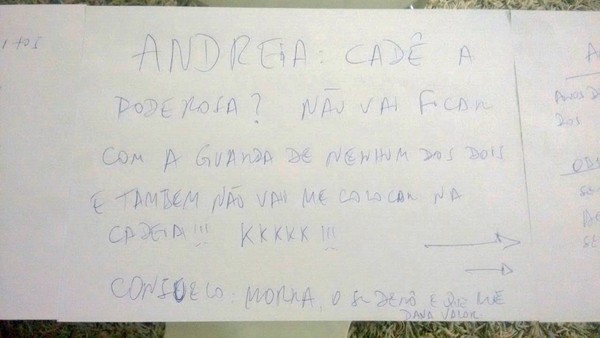 ANDREIA: CADÊ A
PODEROSA? NÃO VAI FICAR
COM A GUARDA DE NENHUM DOS DOIS
E TAMBEM NÃO VAI ME COLOCAR NA
CADEIA!!! KKKKK!!!
CONSUELO: MORRA, O E QUE ME
DAVA VALOR